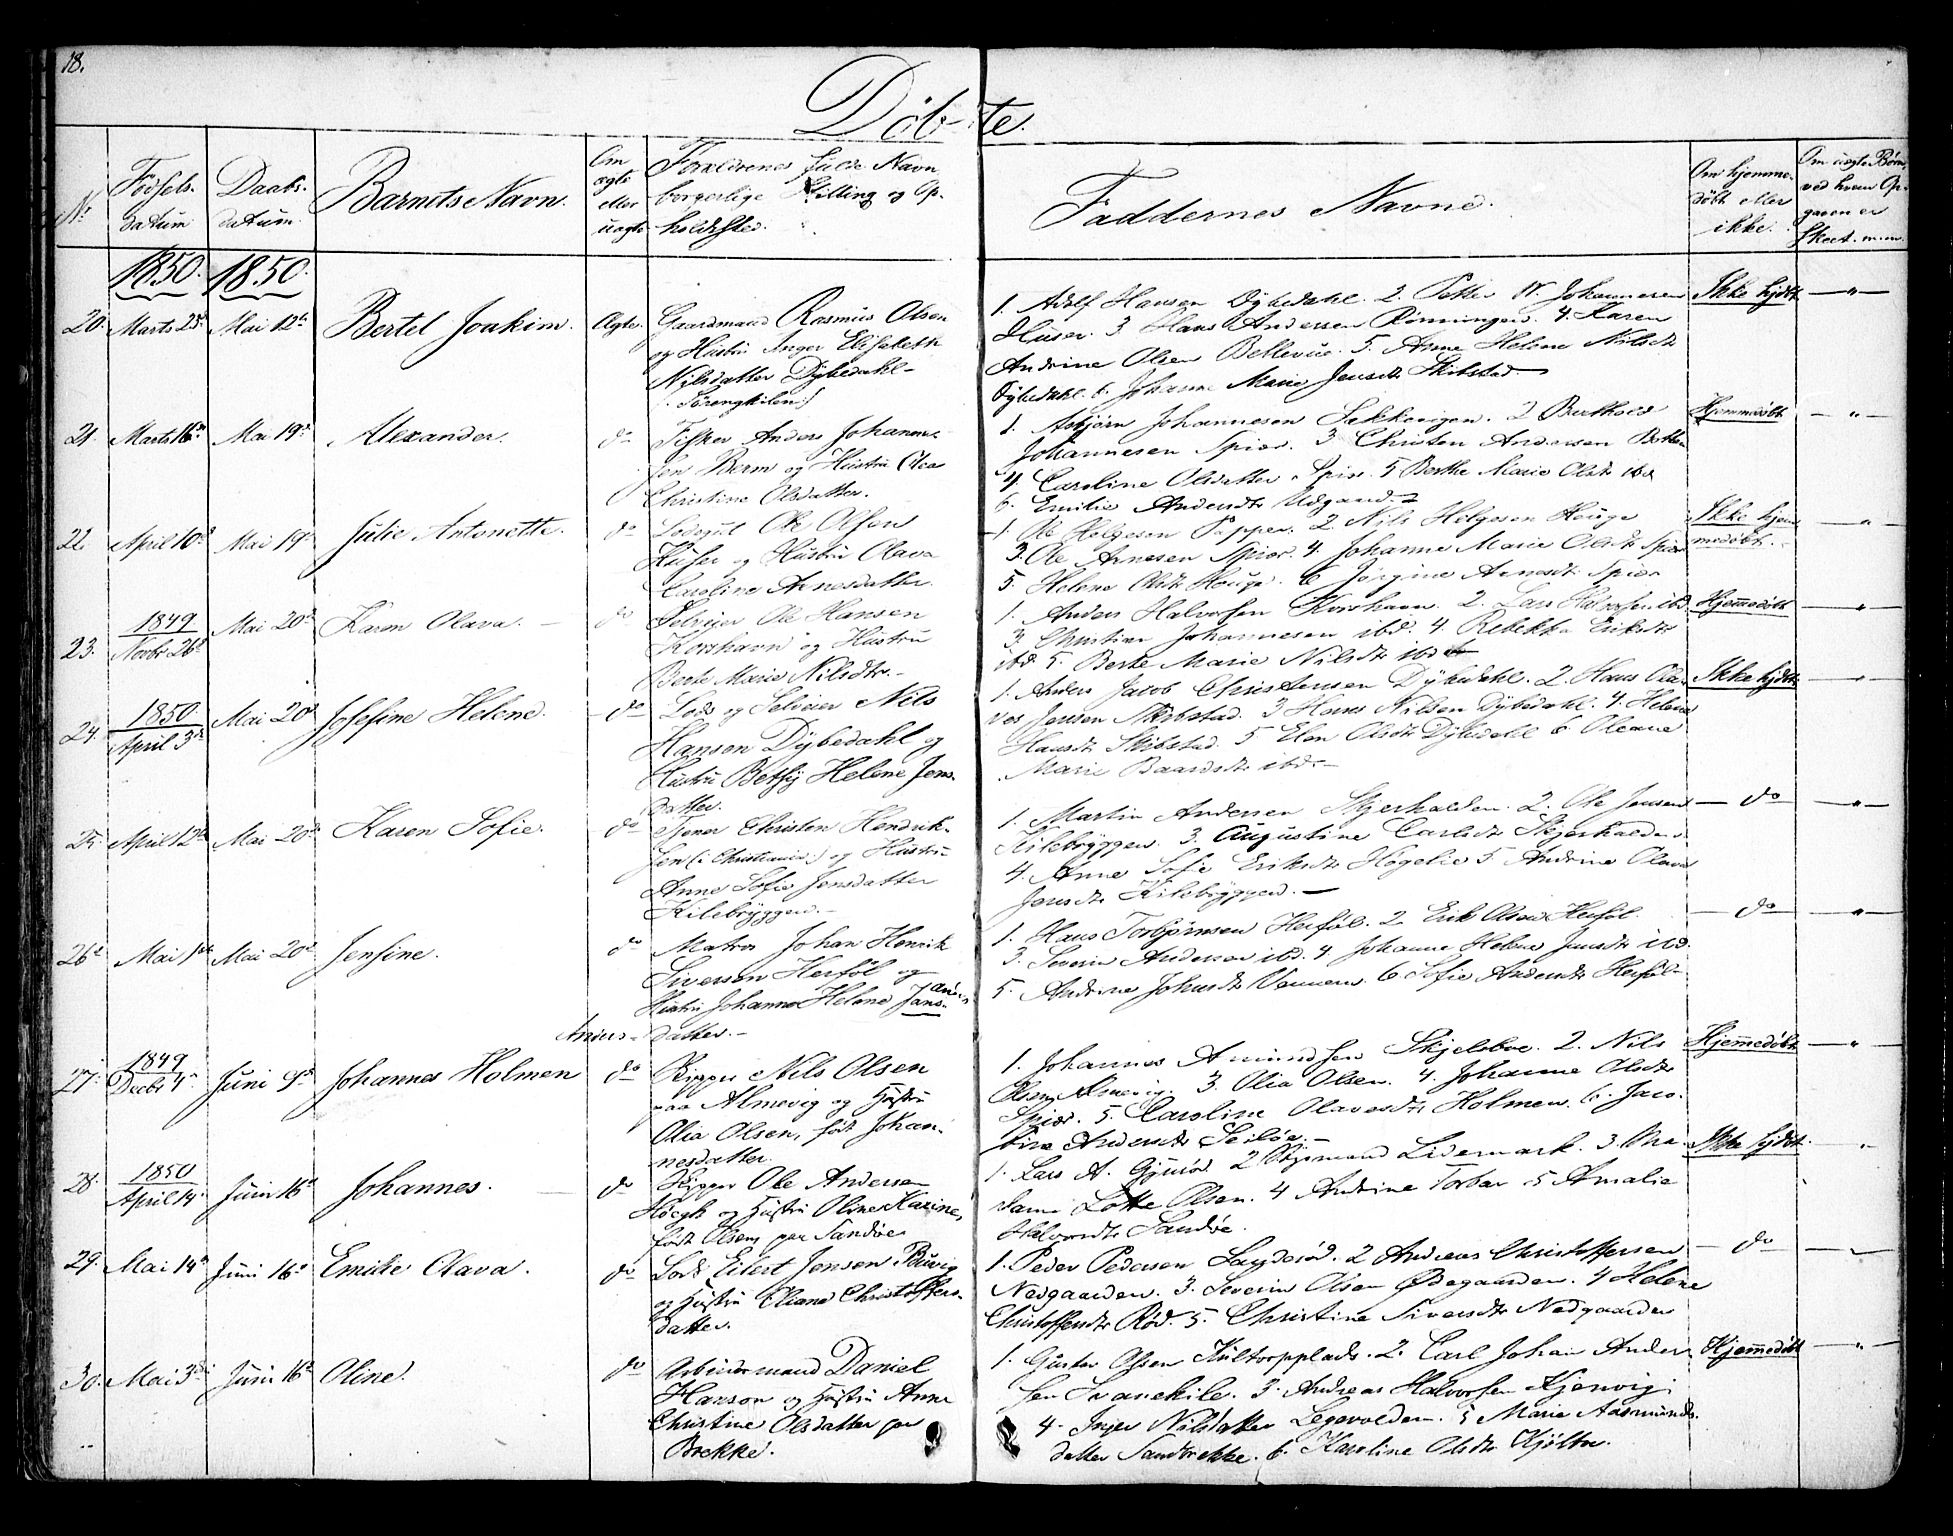 18.
Døbte.
No
Fødsels-
datum
Daabs-
datum.
Barnets Navn.
Om
ægte
eller
uægte
Forældrenes fulde Navn
borgerlige Stilling og Op-
holdsted.
Faddernes Navne.
Om hjemme-
døbt eller
ikke.
Om uægte Børn,
ved hvem Op-
gaven er
skeet. m.m.
1850. 1850.
20. Marts 25de Mai 12te Bertel Joakim. Ægte. Gaardmand Rasmus Olsen
og Hustru Inger Elisabeth
Nilsdatter Dÿbedahl-
Sørengkilen
1. Adolf Hansen Dybedahl. 2. Petter W. Johannesen
Huser. 3 Hans Andersen Rønningen. 4. Karen
Andrine Olsen Bellevue. 5. Anne Helene Nilsdtr
Dybedahl. 6. Johanne Marie Jensdtr Skibstad.
Ikke hjdbt — " —
21. Marts 16de Mai 19de Alexander. do Fisker Anders Johanne-
sen Berm og Hustru Olea
Christine Olsdatter.
1. Asbjørn Johannesen Løkkevigen. 2 Berthold
Johannesen Spiær. 3 Christen Andersen
4. Caroline Olsdatter Spiær. 5 Berthe Marie Olsdtr ibd
6. Emilie Andersdtr Udgaard.
Hjemmedøbt — " —
22. April 10de Mai 19de Julie Antonette. do Lodsgut Ole Olsen
Huser og Hustru Olava
Caroline Arnesdatter.
1. Ole Helgesen Papper. 2 Nils Helgesen Houge
3. Ole Arnesen Spiær. 4. Johanne Marie Olsdtr Spiær
5. Helene Olsdtr Houge. 6 Jørgine Arnesdtr Spiær
Ikke hjem-
medøbt. — " —
23. 1849
Novbr 26de Mai 20de Karen Olava. do Selveier Ole Hansen
Korshavn og Hustru
Berte Marie Nilsdtr.
1. Anders Halvorsen Korshavn. 2. Lars Halvorsen ibd.
3. Christian Johannesen ibd. 4. Rebekka Eriksdtr
ibd. 5. Berte Marie Nilsdtr ibd
Hjemmedøbt — " —
24. 1850
April 3de Mai 20de Josefine Helene. do Lods og Selveier Nils
Hansen Dÿbedahl og
Hustru Betsÿ Helene Jens-
datter.
1. Anders Jacob Christensen Dÿbedahl. 2. Hans Cla-
ves Jensen Skibstad. 3 Hans Nilsen Dybedahl. 4. Helene
Hansdtr Skibstad. 5 Elen Olsdtr Dybedahl 6. Oleane
Marie Baardsdtr ibd.
Ikke hjdbt — " —
25. April 12te Mai 20de Karen Sofie. do Tjener Christen Hendrik-
sen (i Christiania) og Hustru
Anne Sofie Jensdatter
Kilebrÿggen.
1. Martin Andersen Skjerhalden. 2. Ole Jensen
Kilebrÿggen. 3. Augustine Carlsdtr Skjerhalden.
4. Anne Sofie Eriksdtr Høgelie 5 Andrine Olava
Jensdtr Kilebrÿggen.
do — " —
26. Mai 1ste Mai 20de Jensine. do Matros Johan Henrik
Siversen Herføl og
Hustru Johanne Helene Jans-
datter. Anders-
1. Hans Torbjørnsen Herføl. 2. Erik Olsen Herføl.
3. Severin Andersen ibd. 4 Johanne Helene Jensdtr ibd.
5. Andrine Johnsdtr Vennem. 6 Sofie Andersdtr Herføl
do — " —
27. 1849
Decbr 4de Juni 9de Johannes Holmen do Skipper Nils Olsen
paa Almevig og Hustru
Olia Olsen, født Johan-
nesdatter.
1. Johannes Amundsen Skjelsboe. 2. Nils
Olsen Almevig. 3. Olia Olsen. 4. Johanne Olsdtr
Spiær. 5. Caroline Olavesdtr Holmen. 6. Jaco-
bine Andersdtr Seiløe.
Hjemmedøbt — " —
28. 1850
April 14. Juni 16de Johannes. do Skipper Ole Andersen
Høegh og Hustru Oline Karine,
født Olsen paa Sandøe
1. Lars A. Gjurød. 2 Lidemark. 3. Ma-
Lotte Olsen. 4 Andrine Torbar 5 Amalie
Halvorsdtr Sandøe.
Ikke hjdbt. "
29. Mai 14de Juni 16de Emilie Olava. do Lods Eilert Jensen Buvig
og Hustru Eliane Christoffers-
datter.
1. Peder Pedersen Laugerød. 2 Andreas Christoffersen
Nedgaarden. 3. Severin Olsen Ødegaarden. 4 Helene
Christoffersdtr Rød. 5. Christine Siversdtr Nedgaarden
do
30. Mai 3die Juni 16de Oline. do Arbeidsmand Daniel
Hanson og Hustru Anne
Christine Olsdatter paa
Brekke.
1. Gustav Olsen Kultorpplads. 2. Carl Johan Ander-
sen Svanekile. 3. Andreas Halvorsen Kjenvig
4. Inger Nilsdatter Legevolden. 5 Marie Aasmunds-
datter Sandbrekke. 6. Karoline Olsdtr Kjølbo.
Hjemmedøbt — " —